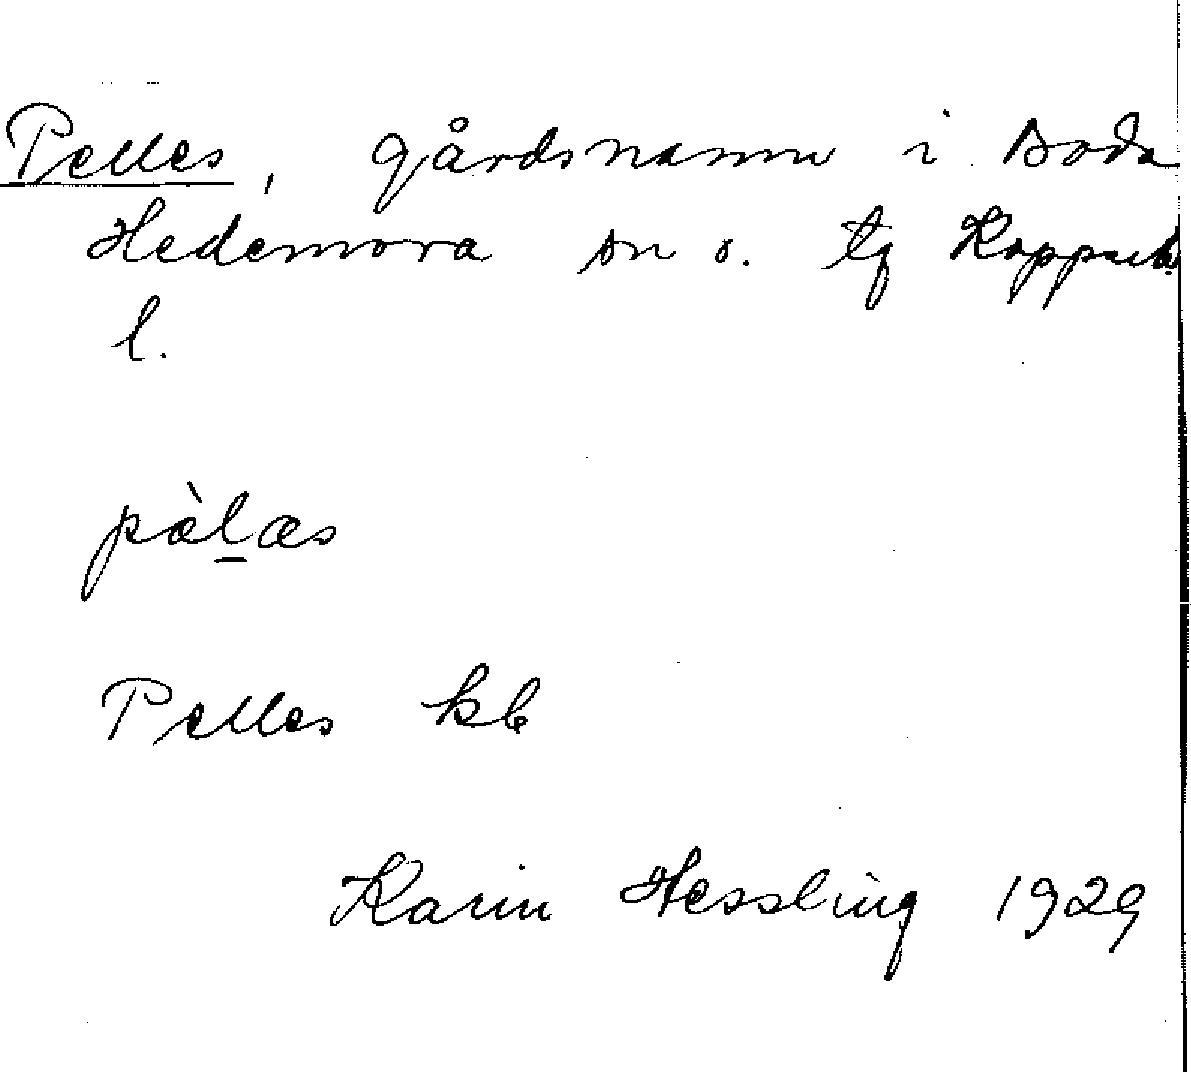 Pelles, gårdsnamn i Boda
Hedemora sn o. tg Kopparb.
l.
pàl̲æs
Pelles kb
Karin Hessling 1929